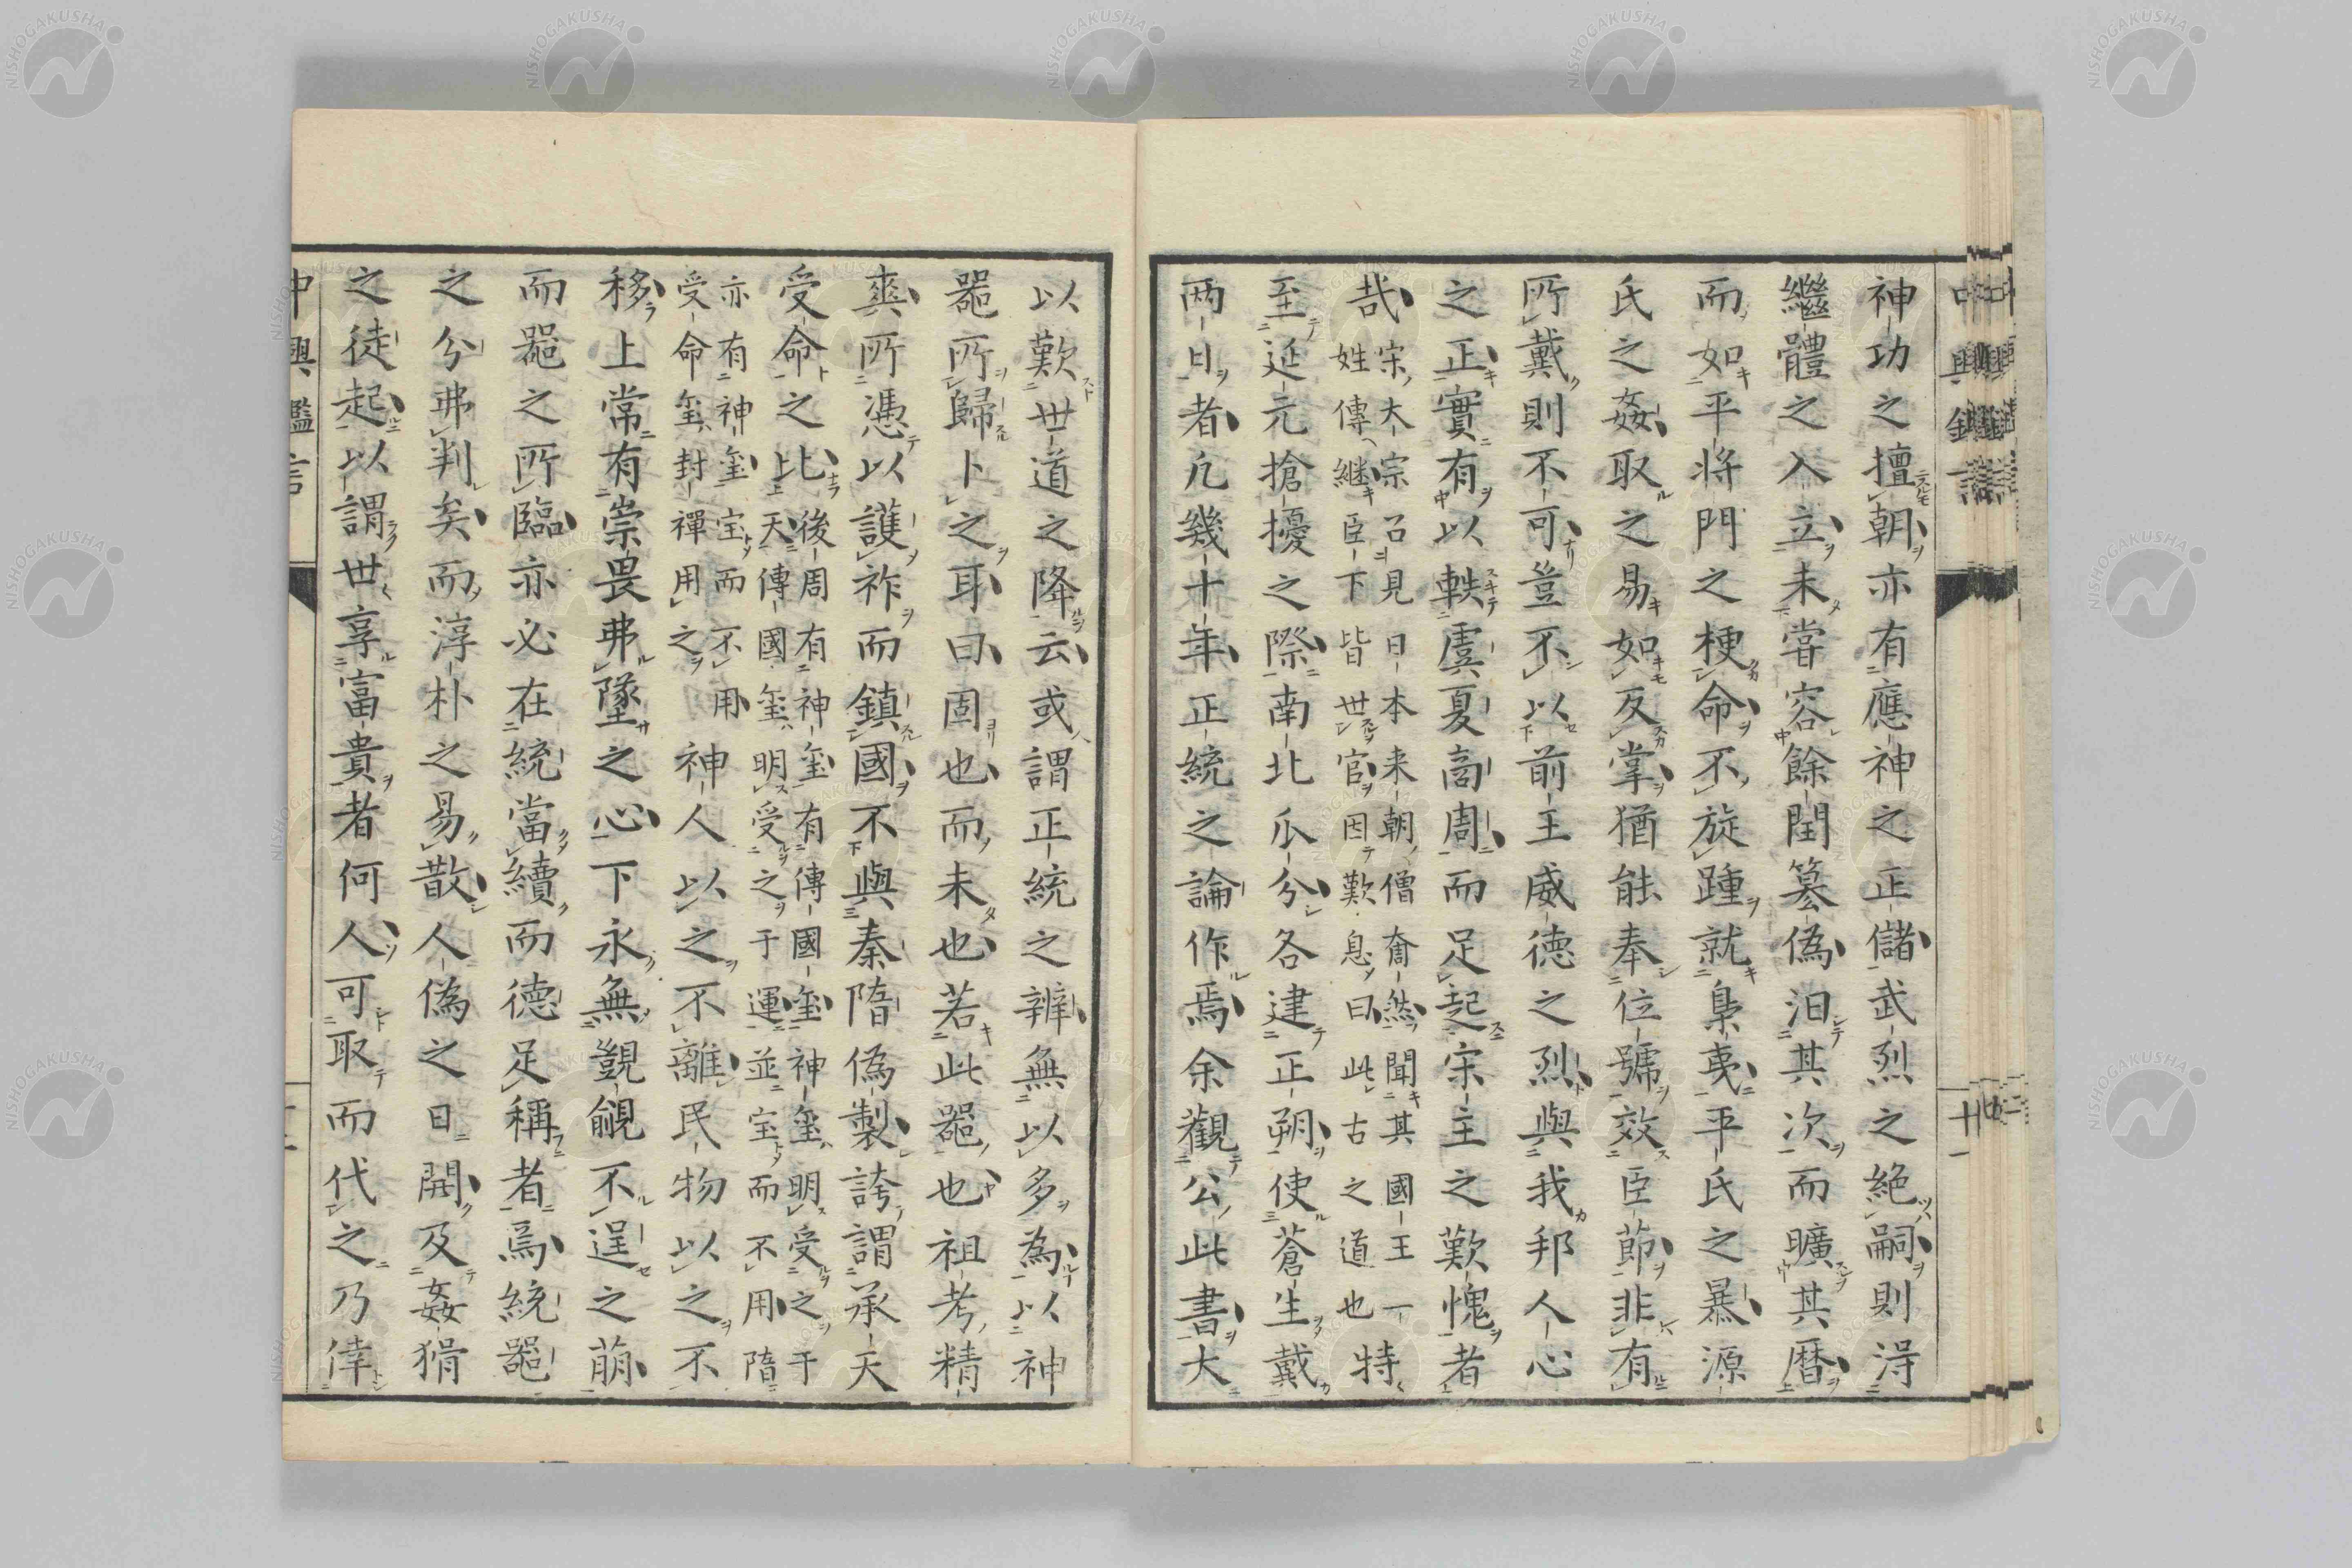 神功之擅朝亦有應神之正儲武烈之絶嗣則淂
繼體之入立未甞容餘閏簒偽汨其次而曠其暦
而如平将門之梗命不旋踵就梟夷平氏之暴源
氏之姦取之易如反掌猶能奉位號效臣節非有
所戴則不可豈不以前王威徳之烈與我邦人心
之正實有以軼虞夏啇周而足起宗主之歎愧者
哉
宗大宗召見日本来朝僧奝然聞其國王一
姓傳継臣下皆世官因歎息曰此古之道也
特
至延元搶擾之際南北瓜分各建正朔使蒼生戴
两日者凢幾十年正統之論作焉余觀公此書大
以歎世道之降云或謂正統之辨無以多為以神
噐所歸卜之耳曰固也而未也若此噐也祖考精
爽所憑以護祚而鎮國不與秦隋偽製誇謂承天
受命之比
後周有神玺有傳國玺神玺明受之于
天傳國玺明受之于運並宝而不用隋
亦有神玺宝而不用
受命玺封禪用之
神人以之不離民物以之不
移上常有崇畏弗墜之心下永無覬覦不逞之萠
而噐之所臨亦必在統當續而徳足稱者焉統噐
之分弗判矣而淳朴之易散人偽之日開及姦猾
之徒起以謂世享富貴者何人可取而代之乃倖
中興鑑言